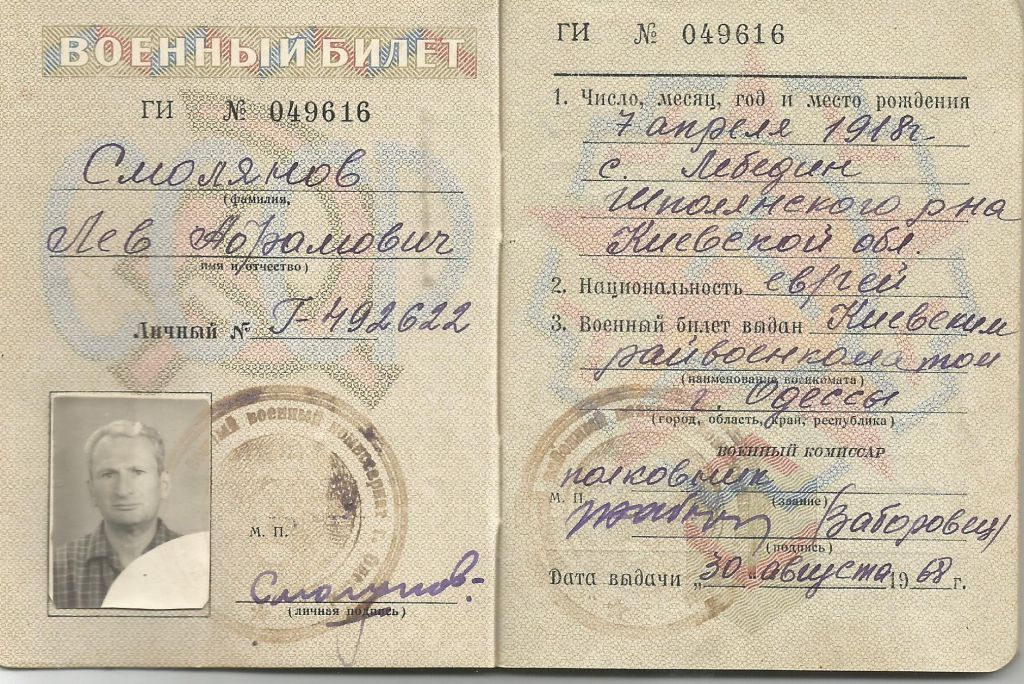 ВОЕННЫЙ БИЛЕТ
ГИ № 049616
Смолянов
(фамилия,
Лев Абрамович
имя и отчество)
Личный № Г-492622
М. П.
Смолянов
(личная подпись)
ГИ № 049616
1. Число, месяц, год и место рождения
7 апреля 1918г.
с. Лебедин
Шполянского р-на
Киевской обл.
2. Национальность еврей
3. Военный билет выдан Киевским
райвоенкоматом
(наименование военкомата)
г. Одессы
(город, область, край, республика)
ВОЕННЫЙ КОМИССАР
полковник
М. П.
(звание)
(Заборовец)
(подпись)
Дата выдачи „30“ августа 1968 г.